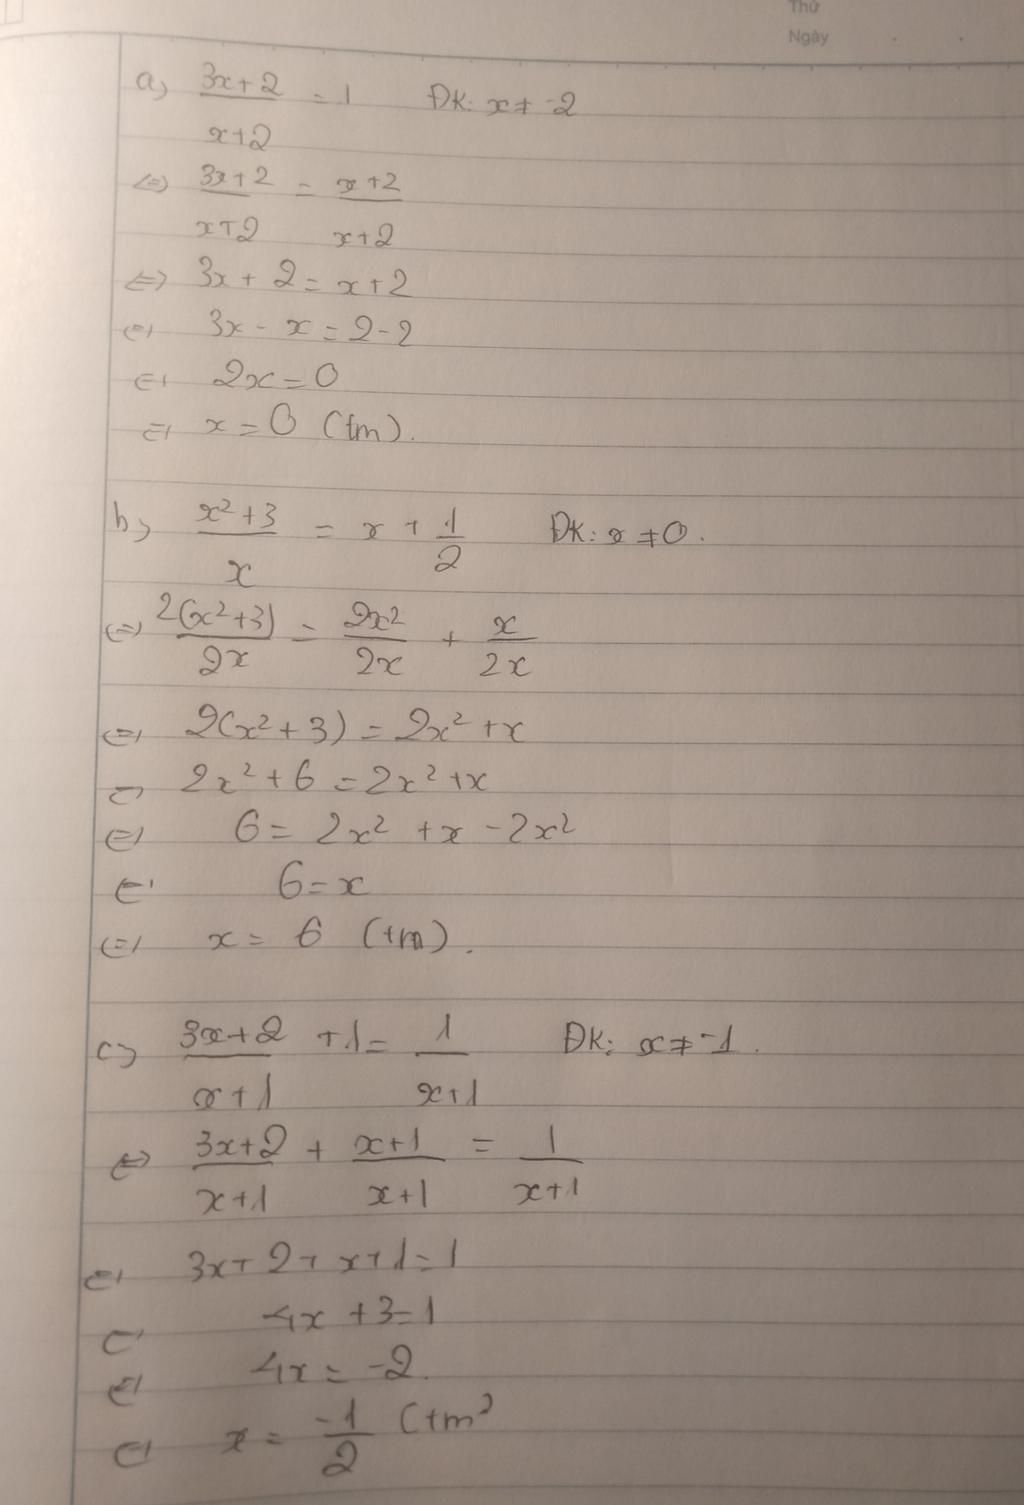 Thứ
Ngày
a) (3x+2)/(x+2) = 1 ĐK: x ≠ -2
<=> (3x+2)/(x+2) = (x+2)/(x+2)
<=> 3x + 2 = x + 2
<=> 3x - x = 2 - 2
<=> 2x = 0
<=> x = 0 (tm).
b) (x²+3)/x = x + 1/2 ĐK: x ≠ 0.
<=> 2(x²+3)/2x = 2x²/2x + x/2x
<=> 2(x²+3) = 2x² + x
<=> 2x² + 6 = 2x² + x
<=> 6 = 2x² + x - 2x²
<=> 6 = x
<=> x = 6 (tm).
c) (3x+2)/(x+1) + 1 = 1/(x+1) ĐK: x ≠ -1.
<=> (3x+2)/(x+1) + (x+1)/(x+1) = 1/(x+1)
<=> 3x + 2 + x + 1 = 1
<=> 4x + 3 = 1
<=> 4x = -2.
<=> x = -1/2 (tm)